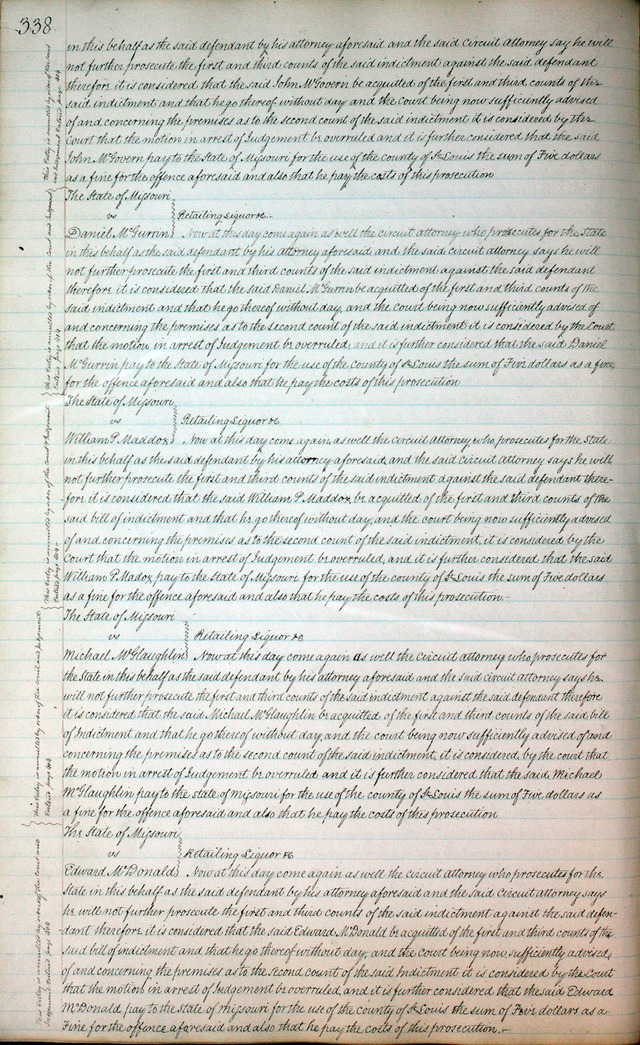 338
in this behalf as the said defendant by his attorney aforesaid and the said Circuit Attorney say he will
not further prosecute the first and third counts of the said indictment against the said defendant
therefore it is considered that the said John McGovern be acquitted of the first and third counts of the
said indictment and that he go thereof without day and the court being now sufficiently advised
of and concerning the premises as to the second count of the said indictment it is considered by the
Court that the motion in arrest of Judgement be overruled and it is further considered that the said
John McGovern pay to the State of Missouri for the use of the county of St Louis the sum of Five dollars
as a fine for the offence aforesaid and also that he pay the costs of this prosecution
The State of Missouri
vs
Retailing Liquor &c
Daniel McGurrin Now at this day come again as well the circuit attorney who prosecutes for the State
in this behalf as the said defendant by his attorney aforesaid and the said circuit attorney says he will
not further prosecute the first and third counts of the said indictment against the said defendant
therefore it is considered that the said Daniel McGurrin be acquitted of the first and third counts of the
said indictment and that he go thereof without day, and the court being now sufficiently advised of
and concerning the premises as to the second count of the said indictment it is considered by the Court
that the motion in arrest of Judgement be overruled, and it is further considered that the said Daniel
McGurrin pay to the State of Missouri for the use of the county of St Louis the sum of Five dollars as a fine
for the offence aforesaid and also that he pay the costs of this prosecution
The State of Missouri
vs
Retailing Liquor &c
William P. Maddox Now at this day come again, as well the circuit attorney who prosecutes for the State
in this behalf as the said defendant by his attorney aforesaid, and the said circuit attorney says he will
not further prosecute the first and third counts of the said indictment against the said defendant there-
fore it is considered that the said William P Maddox be acquitted of the first and third counts of the
said bill of indictment and that he go thereof without day, and the court being now sufficiently advised
of and concerning the premises as to the second count of the said indictment, it is considered by the
Court that the motion in arrest of Judgement be overruled, and it is further considered that the said
William P. Madox pay to the State of Missouri for the use of the county of St Louis the sum of Five dollars
as a fine for the offence aforesaid and also that he pay the costs of this prosecution.-
The State of Missouri
vs
Retailing Liquor &c
Michael McGlaughlin Now at this day come again as well the circuit attorney who prosecutes for
the State in this behalf as the said defendant by his attorney aforesaid and the said circuit attorney says he
will not further prosecute the first and third counts of the said indictment against the said defendant therefore
it is considered that the said Michael McGlaughlin be acquitted of the first and third counts of the said bill
of Indictment and that he go thereof without day, and the court being now sufficiently advised of and
concerning the premises as to the second count of the said indictment, it is considered, by the court that
the motion in arrest of Judgement be overruled and it is further considered that the said Michael
McGlaughlin pay to the state of missouri for the use of the county of St Louis the sum of Five dollars as
a fine for the offence aforesaid and also that he pay the costs of this prosecution
The State of Missouri
vs
Retailing Liquor &c
Edward McDonald Now at this day come again as well the circuit attorney who prosecutes for the
State in this behalf as the said defendant by his attorney aforesaid and the said Circuit Attorney says
he will not further prosecute the first and third counts of the said indictment against the said defen-
dant therefore it is considered that the said Edward McDonald be acquitted of the first and third counts of the
said bill of indictment and that he go thereof without day, and the court being now sufficiently advised,
of and concerning the premises as to the second count of the said Indictment it is considered by the Court
that the motion in arrest of Judgement be overruled, and it is further considered that the said Edward
McDonald pay to the State of missouri for the use of the county of St Louis the sum of Five dollars as a
Fine for the offence aforesaid and also that he pay the costs of this prosecution.-